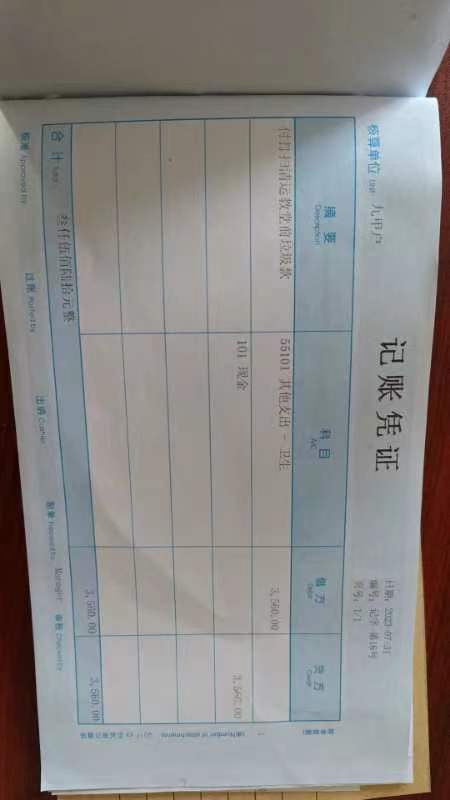 记账凭证
核算单位 Unit: 九甲户
日期: 2023-07-31
编号: 记字 第16号
页号: 1/1
摘要 Description
科目 A/C
借方 Debit
贷方 Credit
付打扫清运教堂前垃圾款
55101 其他支出 - 卫生
3,560.00
101 现金
3,560.00
合计 Total
叁仟伍佰陆拾元整
3,560.00
3,560.00
核准 Approved by
过账 Posted by
出纳 Cashier
制单
Manager
审核 Checked by